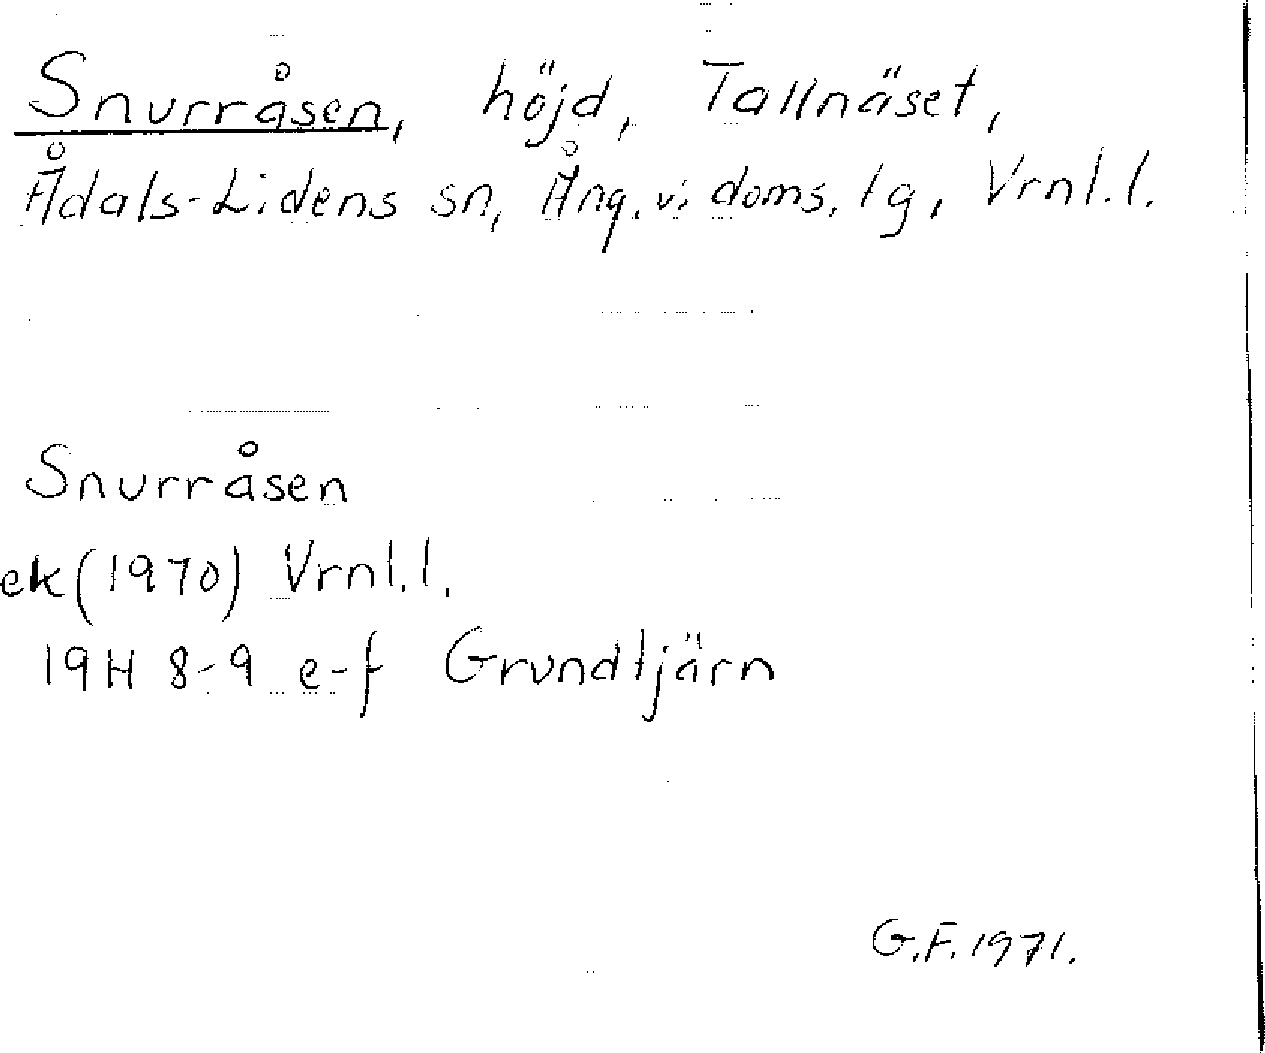 Snurråsen, höjd, Tallnäset,
Ådals-Lidens sn, Ång. v. doms. lg, Vrnl.l.
Snurråsen
ek (1970) Vrnl.l.
19H 8-9 e-f Grundtjärn
G.F. 1971.